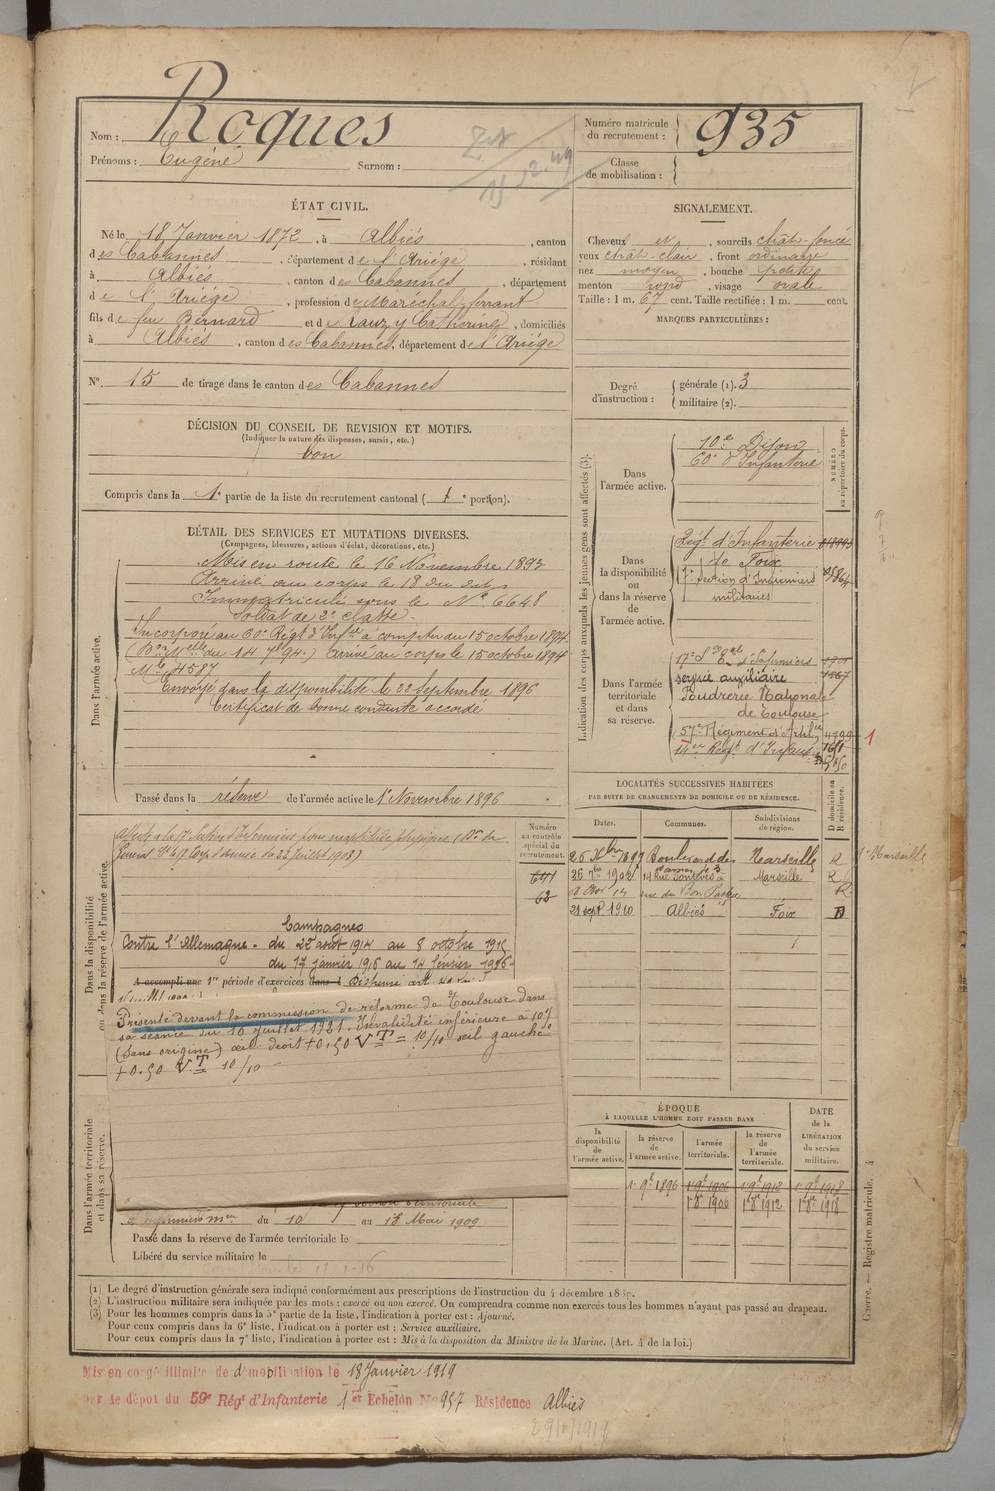 Nom : Roques
Prénoms : Eugène Surnom :
Numéro matricule du recrutement : 935
Classe de mobilisation :
ÉTAT CIVIL.
Né le 18 Janvier 1872, à Albiès, canton
des Cabannes, département de l'Ariége, résidant
à Albiès, canton des Cabannes, département
de l'Ariége, profession de Maréchal ferrant
fils de feu Bernard et de Lauzy Catherine, domiciliés
à Albiès, canton des Cabannes, département de l'Ariége
N° 15 de tirage dans le canton des Cabannes
SIGNALEMENT.
Cheveux et, sourcils chât-foncé
yeux chât-clair, front ordinaire
nez moyen, bouche petite
menton rond, visage ovale
Taille : 1 m. 67 cent. Taille rectifiée : 1 m. cent.
MARQUES PARTICULIÈRES :
Degré d'instruction : générale (1). 3
militaire (2).
DÉCISION DU CONSEIL DE REVISION ET MOTIFS.
(Indiquer la nature des dispenses, sursis, etc.)
bon
Compris dans la 1e partie de la liste du recrutement cantonal ( 1e portion).
DÉTAIL DES SERVICES ET MUTATIONS DIVERSES.
(Campagnes, blessures, actions d'éclat, décorations, etc.)
Dans l'armée active.
Mis en route le 16 Novembre 1893
Arrivé au corps le 18 du dit
Immatriculé sous le N° 6648
Soldat de 2e classe.
Incorporé au 60e Régt d'Inftie à compter du 15 octobre 1894
(Don Melle du 14 7bre 94.) arrivé au corps le 15 octobre 1894
Mle 4587
Envoyé dans la disponibilité le 22 septembre 1896
Certificat de bonne conduite accordé
Passé dans la réserve de l'armée active le 1er Novembre 1896
Indication des corps auxquels les jeunes gens sont affectés (3).
NUMÉRO au répertoire du corps.
Dans l'armée active.
10e Dijon
60e d'Infanterie
Dans la disponibilité ou dans la réserve de l'armée active.
Régt d'Infanterie
de Foix
17e section d'Infirmiers
militaires
Dans l'armée territoriale et dans sa réserve.
service auxiliaire
Poudrerie Nationale
de Toulouse
57e Régiment d'Artie 4799
14er Régt d'Infant.
1
LOCALITÉS SUCCESSIVES HABITÉES
PAR SUITE DE CHANGEMENTS DE DOMICILE OU DE RÉSIDENCE.
Dates. Communes. Subdivisions de région. D domicile ou R résidence.
26 Xbre 1897 Boulevard des Dames Marseille R
26 7bre 1902 Marseille R
rue du Bon Pasteur R
21 sept 1910 Albiès Foix D
Dans la disponibilité ou dans la réserve de l'armée active.
Numéro au contrôle spécial du recrutement.
641
62
Campagnes
Contre l'Allemagne - du 22 août 1914 au 8 octobre 1915
du 17 janvier 1916 au 14 février 1916
A accompli une 1re période d'exercices dans l
Présenté devant la commission de réforme de Toulouse dans
sa séance du 16 juillet 1921. Invalidité inférieure à 10%
(sans origine) œil droit +0.50 V T = 10/10 œil gauche
+0.50 V T = 10/10
Dans l'armée territoriale et dans sa réserve.
du 10 au 18 Mai 1909
Passé dans la réserve de l'armée territoriale le
Libéré du service militaire le
ÉPOQUE
À LAQUELLE L'HOMME DOIT PASSER DANS
la disponibilité de l'armée active. la réserve de l'armée active. l'armée territoriale. la réserve de l'armée territoriale. DATE de la LIBÉRATION du service militaire.
1er 9bre 1896 1er 9bre 1906 1er 9bre 1912 1er 9bre 1918
1er 8bre 1906 1er 8bre 1912 1er 8bre 1918
(1) Le degré d'instruction générale sera indiqué conformément aux prescriptions de l'instruction du 4 décembre 1889.
(2) L'instruction militaire sera indiquée par les mots : exercé ou non exercé. On comprendra comme non exercés tous les hommes n'ayant pas passé au drapeau.
(3) Pour les hommes compris dans la 5e partie de la liste, l'indication à porter est : Ajourné.
Pour ceux compris dans la 6e liste, l'indication à porter est : Service auxiliaire.
Pour ceux compris dans la 7e liste, l'indication à porter est : Mis à la disposition du Ministre de la Marine. (Art. 4 de la loi.)
Guerre. — Registre matricule. 4
Mis en congé illimité de démobilisation le 18 Janvier 1919
par le dépôt du 59e Rég' d'Infanterie 1er Echelon N° 957 Résidence Albiès